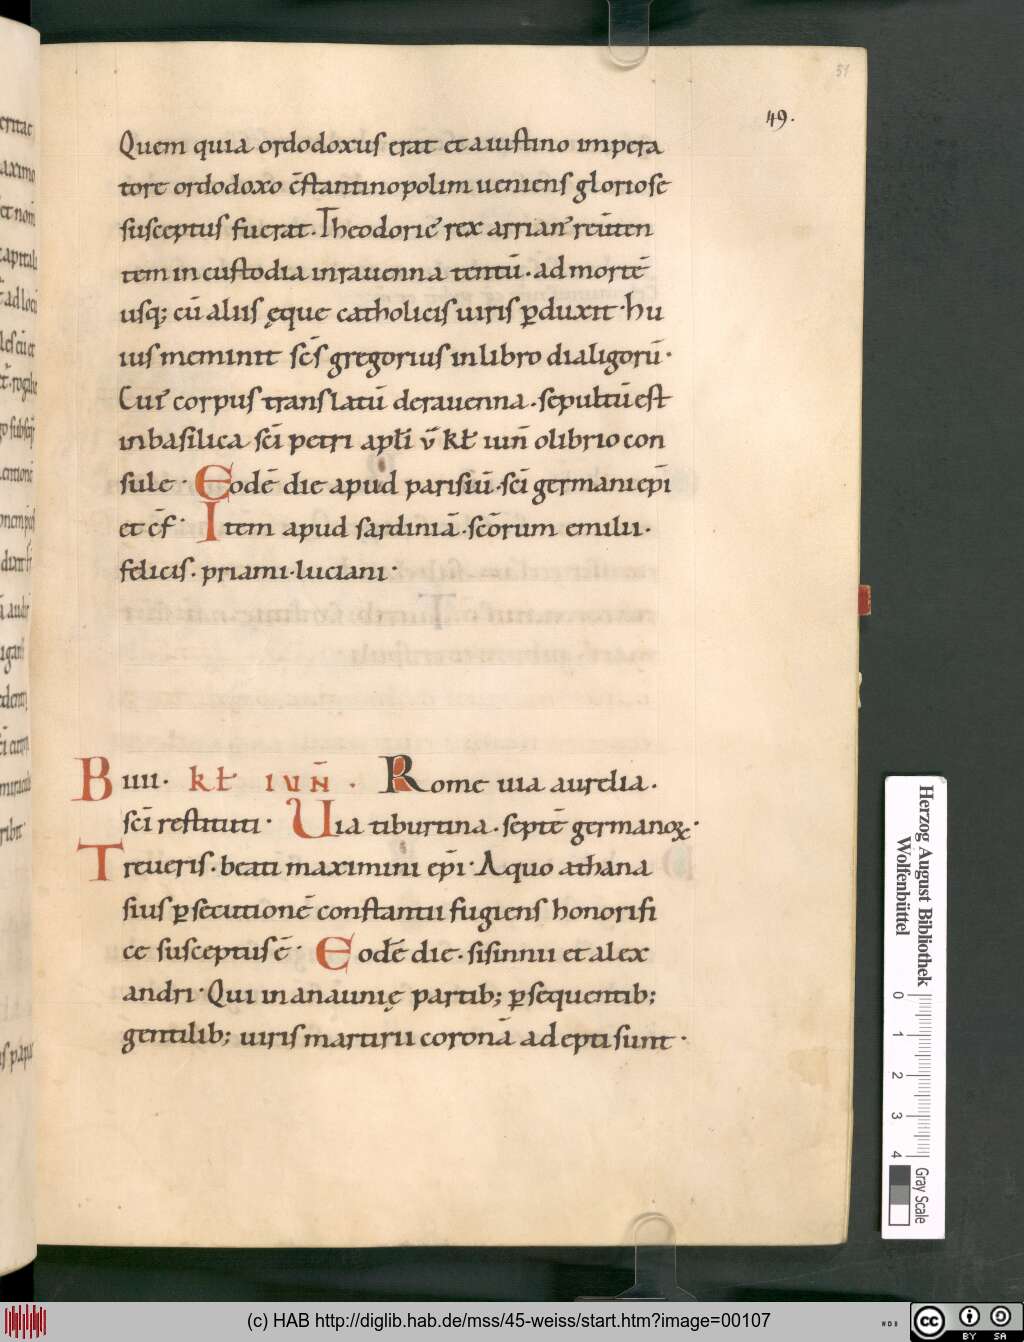 49.
51
Quem quia ordodoxus erat et a iustino impera
tore ordodoxo c̄stantinopolim ueniens gloriose
susceptus fuerat. Theodoric᾽ rex arrian᾽ reūten
tem in custodia in rauenna tentū. ad mortē
usq; cū aliis ęque catholicis uiris ꝑduxit. hu
ius meminit sc̄s gregorius in libro dialigorū.
Cui᾽ corpus translatū de rauenna. sepultū est
in basilica sc̄i petri apl̄i v̄ kł iun̄ olibrio con
sule. Eodē die apud parisiū. sc̄i germani ep̄i
et c̄f. Item apud sardiniā. sc̄orum emilii.
felicis. priami. luciani.
B iiii. kł iun̄. Rome uia aurelia.
sc̄i restituti. Uia tiburtina. septē germanoꝝ.
Treueris. beati maximini ep̄i. A quo athana
sius ꝑsecutionē constantii fugiens honorifi
ce susceptus ē. Eodē die. sisinnii et alex
andri. Qui in anaunię partib; ꝑsequentib;
gentilib; uiris martirii coronā adepti sunt.
Herzog August Bibliothek
Wolfenbüttel
0 1 2 3 4
Gray Scale
(c) HAB http://diglib.hab.de/mss/45-weiss/start.htm?image=00107
cc BY SA